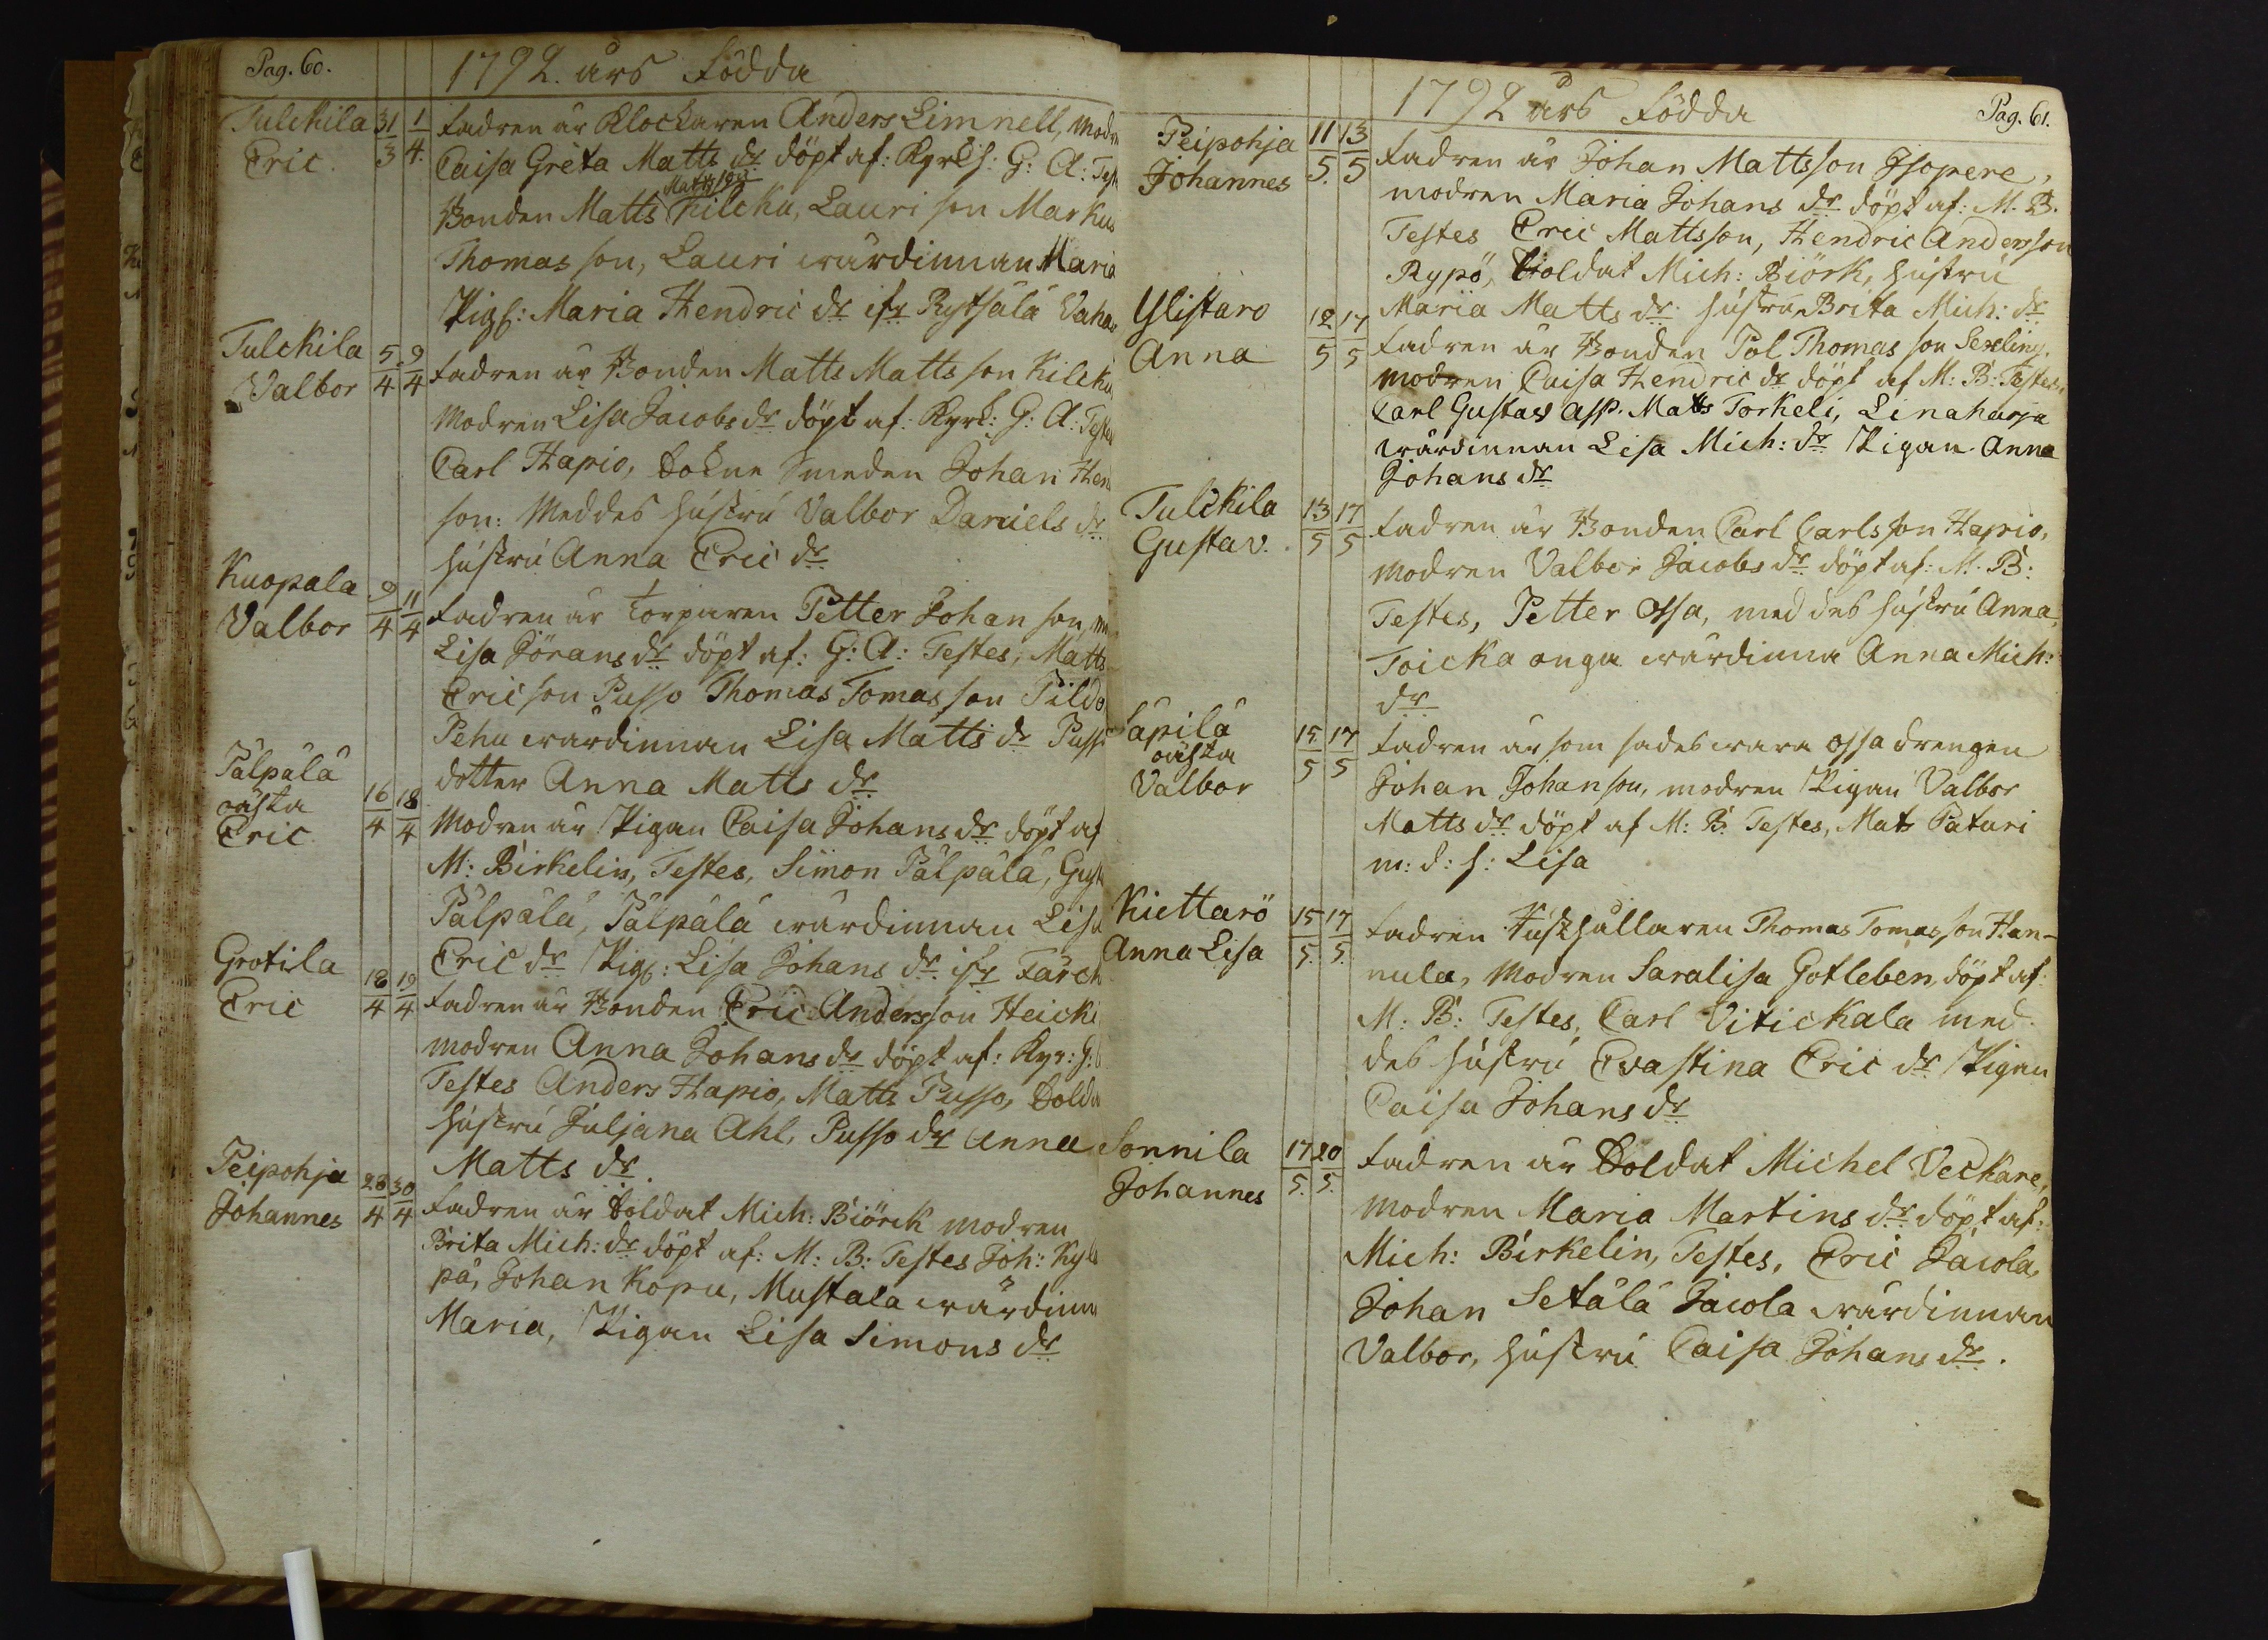 Pag. 60.
1792. års Födda
Tulckila 31/3 1/4 Fadren är Klockaren Anders Limnell, Modr
Eric. Caisa Greta Matts dr döpt af: Kyrkh: G: A: Test
Mattsson
Bonden Matts Kilcku, Lauri son Markus
Thomas son, Lauri wärdinnan Maria
Pig: Maria Hendric dr ifr Rytsälä
Tulckila 5/4 9/4 Fadren är Bonden Matts Matts son Kilcku
Valbor Modren Lisa Jacobs dr döpt af: Kyrk: G: A: Testes
Carl Hapio, Sokne Smeden Johan Hen
son: Meddes hustru Valbor Daniels dr
hustru Anna Eric dr
Kuopala 9/4 11/4 Fadren är Torparen Petter Johan son, m
Valbor Lisa Jörans dr döpt af: G: A: Testes, Matts
Eric son Pusso Thomas Tomas son
Pehu wärdinnan Lisa Matts dr Puss
dotter Anna Matts dr
Pälpälä
oästa
Eric. 16/4 18/4 Modren är Pigan Caisa Johans dr döpt af
M: Birkelin, Testes, Simon Pälpälä, Gust
Pälpälä, Pälpälä wärdinnan Lisa
Eric dr Pig: Lisa Johans dr ifr
Grotila 18/4 19/4 Fadren är Bonden Eric Andersson Heicki
Eric modren Anna Johans dr döpt af: Kyr: G:
Testes Anders Hapio, Matts Pusso, Solda
hustru Juljana Ahl, Pusso dr Anna
Matts dr.
Peipohja 28/4 30/4 Fadren är Soldat Mich: Biörck modren
Johannes Brita Mich: dr döpt af: M: B: Testes Joh: Kyl
pä, Johan Kopu, Mustala wärdinn
Maria, Pigan Lisa Simons dr
1792 års Födda
Pag. 61.
Peipohja 11/5 13/5 Fadren är Johan Mattsson Isopere,
Johannes modren Maria Johans dr döpt af: M. B.
Testes Eric Mattsson, Hendric Andersson
Rypö, Soldat Mich: Biörk, hustru
Maria Matts dr hustru Brita Mich: dr
Ylistaro 12/5 17/5 Fadren är Bonden Pol Thomas son Sexling,
Anna modren Caisa Hendric dr döpt af M: B: Testes,
Carl Gustav Asp. Matts Torkeli, Linaharja
wärdinnan Lisa Mich: dr Pigan Anna
Johans dr
Tulckila 13/5 17/5 Fadren är Bonden Carl Carlsson Hapio,
Gustav. modren Valbor Jacobs dr döpt af: M. B:
Testes, Petter Ossa, med des hustru Anna,
Toicka unga wärdinna Anna Mich:
dr
Säpilä
oästa
Valbor 15/5 17/5 Fadren är som sades wara Ossa drengen
Johan Johanson, modren Pigan Valbor
Matts dr döpt af M: B. Testes, Mats Paturi
m: d: h: Lisa
Kiettarö 15/5 17/5 Fadren Hushållaren Thomas Tomas son Han-
Anna Lisa nula, Modren Saralisa Gotleben, döpt af
M: B: Testes, Carl Vitickala med
des hustru Evastina Eric dr Pigan
Caisa Johans dr
Sonnila 17/5 20/5 Fadren är Soldat Michel Veckare,
Johannes modren Maria Martins dr döpt af:
Mich: Birkelin, Testes, Eric Jacola,
Johan Setälä Jacola wärdinnan
Valbor, hustru Caisa Johans dr.